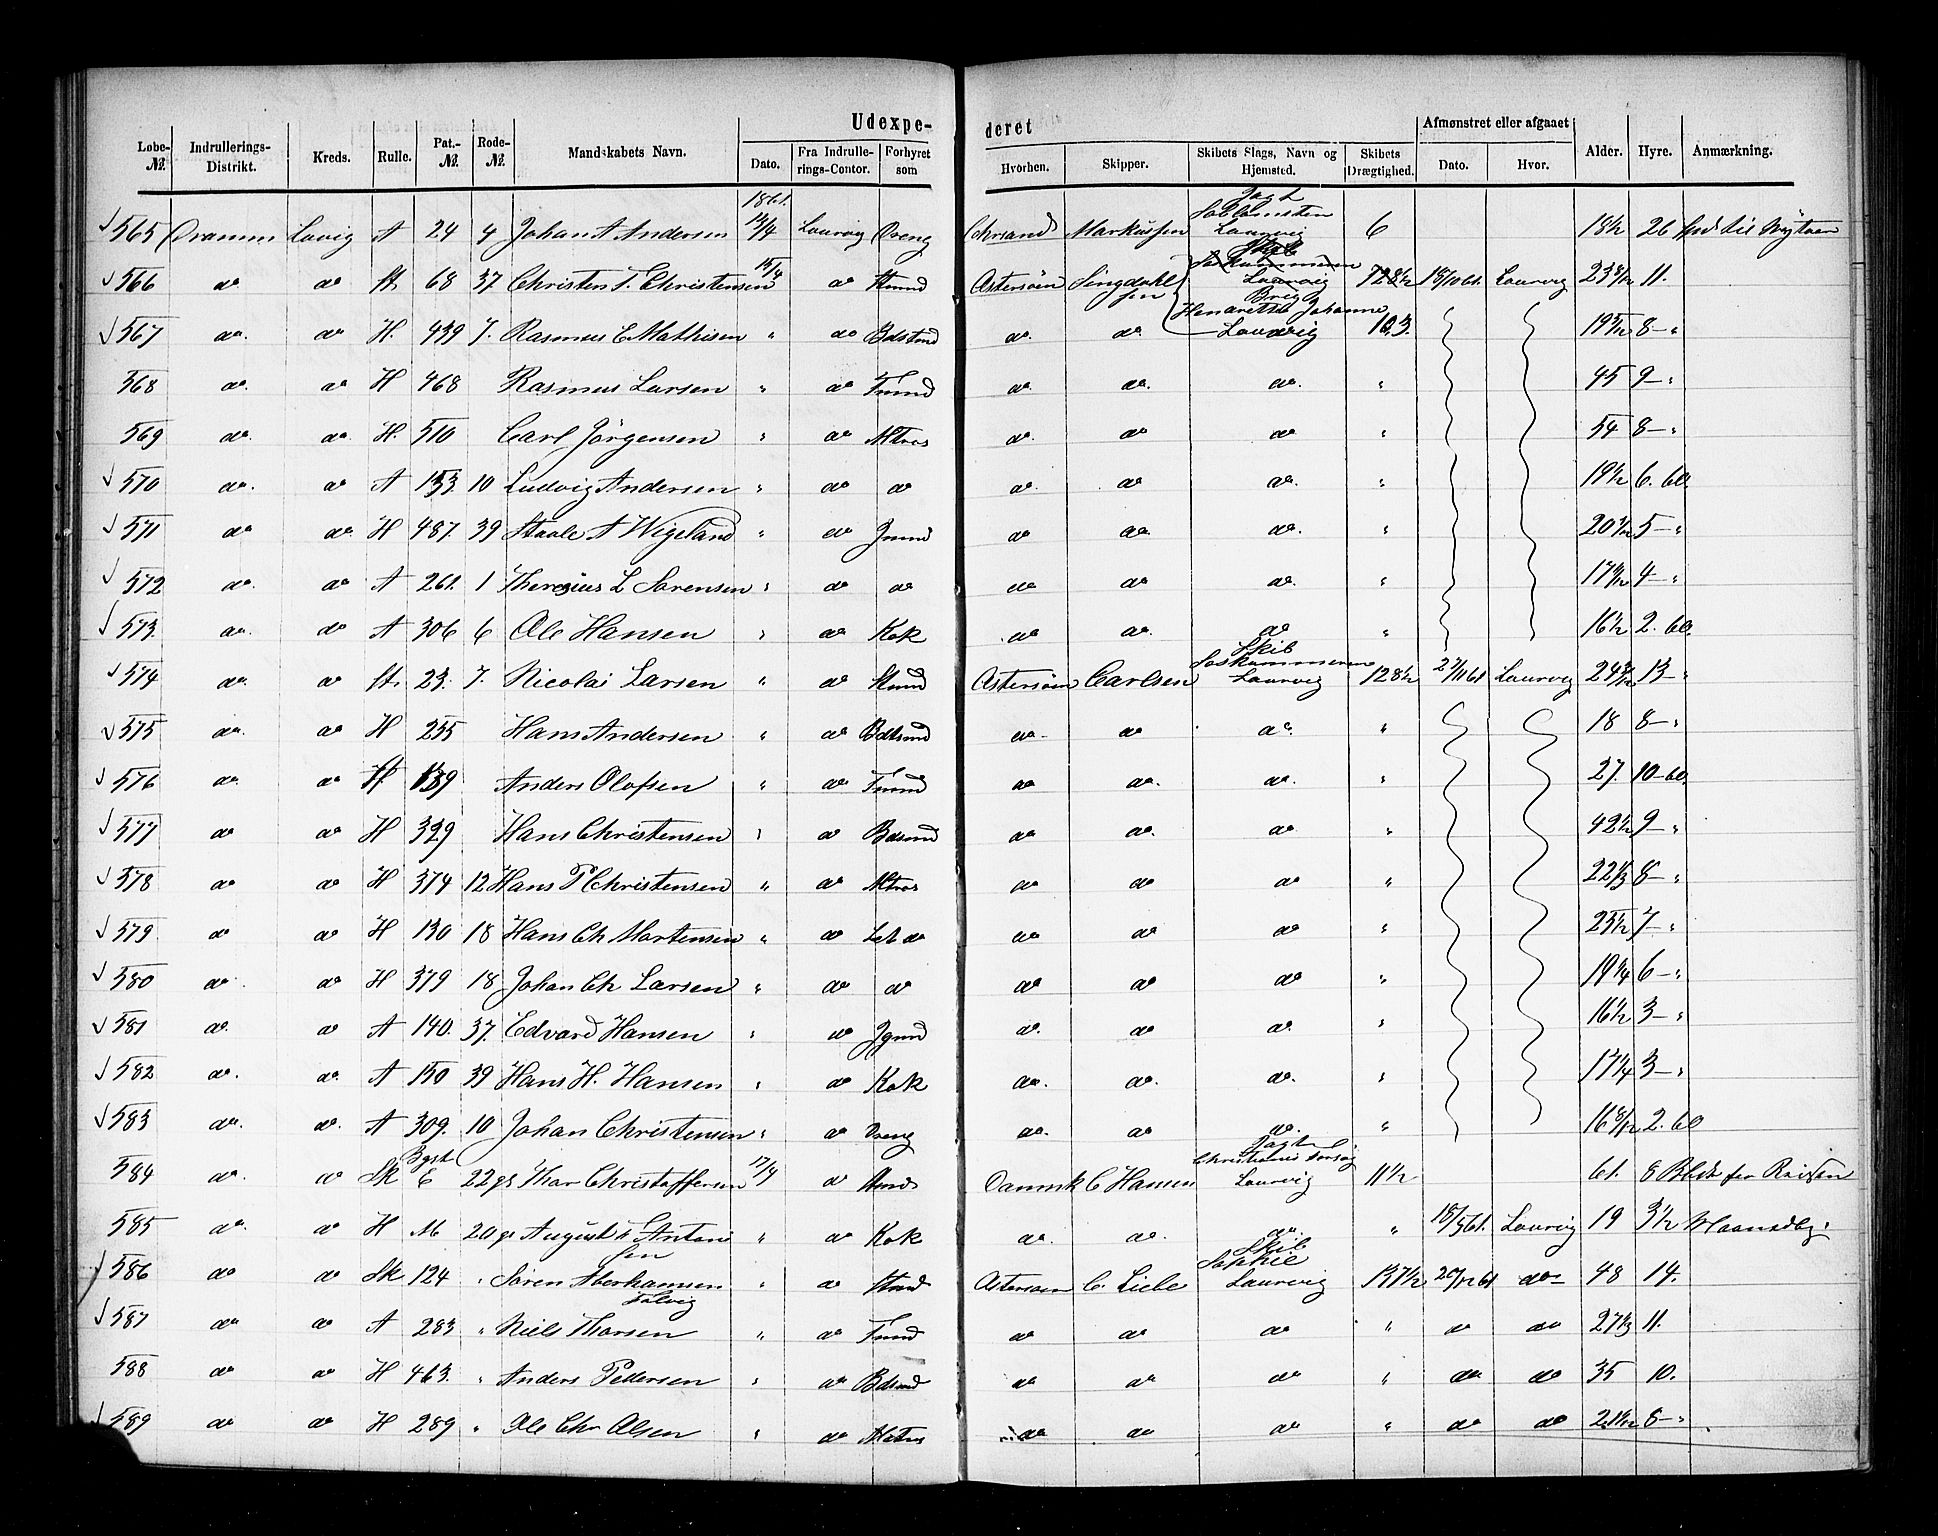 Udexpe- deret
Løbe- №. Indrullerings- Distrikt. Kreds. Rulle. Pat.- №. Rode- №. Mandskabets Navn. Dato. Fra Indrulle- rings-Contor. Forhyret som Hvorhen. Skipper. Skibets Slags, Navn og Hjemsted. Skibets Drægtighed. Afmønstret eller afgaaet Dato. Hvor. Alder. Hyre. Anmærkning.
1861.
565 Dramm Lavig A 24 4 Johan A Andersen 14/4 Laurvig Dreng Chrsand Markussen Jagt Laurvig 6 18½ 26
566 do do St. 68 37 Christen T. Christensen 15/4 do Stmnd Astersöen Lingdahlsen Skib Laurvig 128½ 18/10 61 Laurvig 23 8/12 11.
Brig Henriette Johanne
567 do. do H. 439 7. Rasmus C Mathisen " do Bdstmd do. do. Laurvig 103. 19 5/12 8 - "
568 do. do H 468 Rasmus Larsen " do Tmmd do do. do. " 45 9 - "
569 do. do. H. 510 Carl Jörgensen " do Mtros do. do do " 54 8 - "
570 do. do A 133. 10 Ludvig Andersen " do do do. do do. " 19½ 6. 60.
571 do do H 487. 39 Staale A Wigeland " do Jnmd do do do. " 20 1/12 5 - "
572 do. do A 261. 1 Theresius L Sørensen " do do do do do. " 17 4 - "
573. do. do A 306 6 Ole Hansen " do Kok do do. do " 16½ 2. 60.
574 do. do St. 23. 7. Nicolai Larsen " do Stmnd Astersöen Carlsen Skib Laurvig 128½ 27/11 61 Laurvig 24 3/12 13 - "
575 do. do H 255 Hans Andersen " do Bdsmd do - do do. " 18 8 - "
576 do. do H 139 Anders Olofsen " do Tmmd do do. do. " 27. 10 - 60.
577 do do H 329 Hans Christensen " do Bdsmd do do. do " 42½ 9 - "
578 do do H 374 12 Hans P Christensen " do Mtros do do do " 22⅓ 8 - "
579 do do H 130 18 Hans Ch Mortensen " do Let do do do do " 23½ 7 - "
580 do. do H 379 18 Johan Ch Larsen " do do do do do " 19¼ 6 - "
581 do. do A 140. 37. Edvard Hansen " do Jgmd do. do do. " 16½ 3 - "
582 do. do. A 150 39 Hans H. Hansen " do Kok do. do. do. " 17¼ 3 - "
583 do. do. A 309. 10 Johan Christensen " do Dreng do. do do. " 16 8/12 2. 60
584 do. do Sk Bgst E 22 gs Thor Christoffersen 17/4 do Stmd Danmk C Hansen Jagt Laurvig 11½ 61. 8 Bldr for Reisen
585 do. do H M 20 gs August Antonsen " do Kok do. do. do. " 18/5 61. Laurvig 19 3½ Maanedlg.
586 do do Sk 124 " Søren Aberhamsen " do Stmd Astersöen C. Liebe Skib Laurvig 137½ 20/12 61 do - 48 14.
Tolvig
587 do do A 283 " Niels Thorsen " do Tmmd do do do " do do 27⅓ 11.
588 do do H 463. " Anders Pedersen " do Bdsmd do do do " do. do 35 10.
589 do do H 289 " Ole Chr Olsen " do Matros do do do " do do 21 8 - "